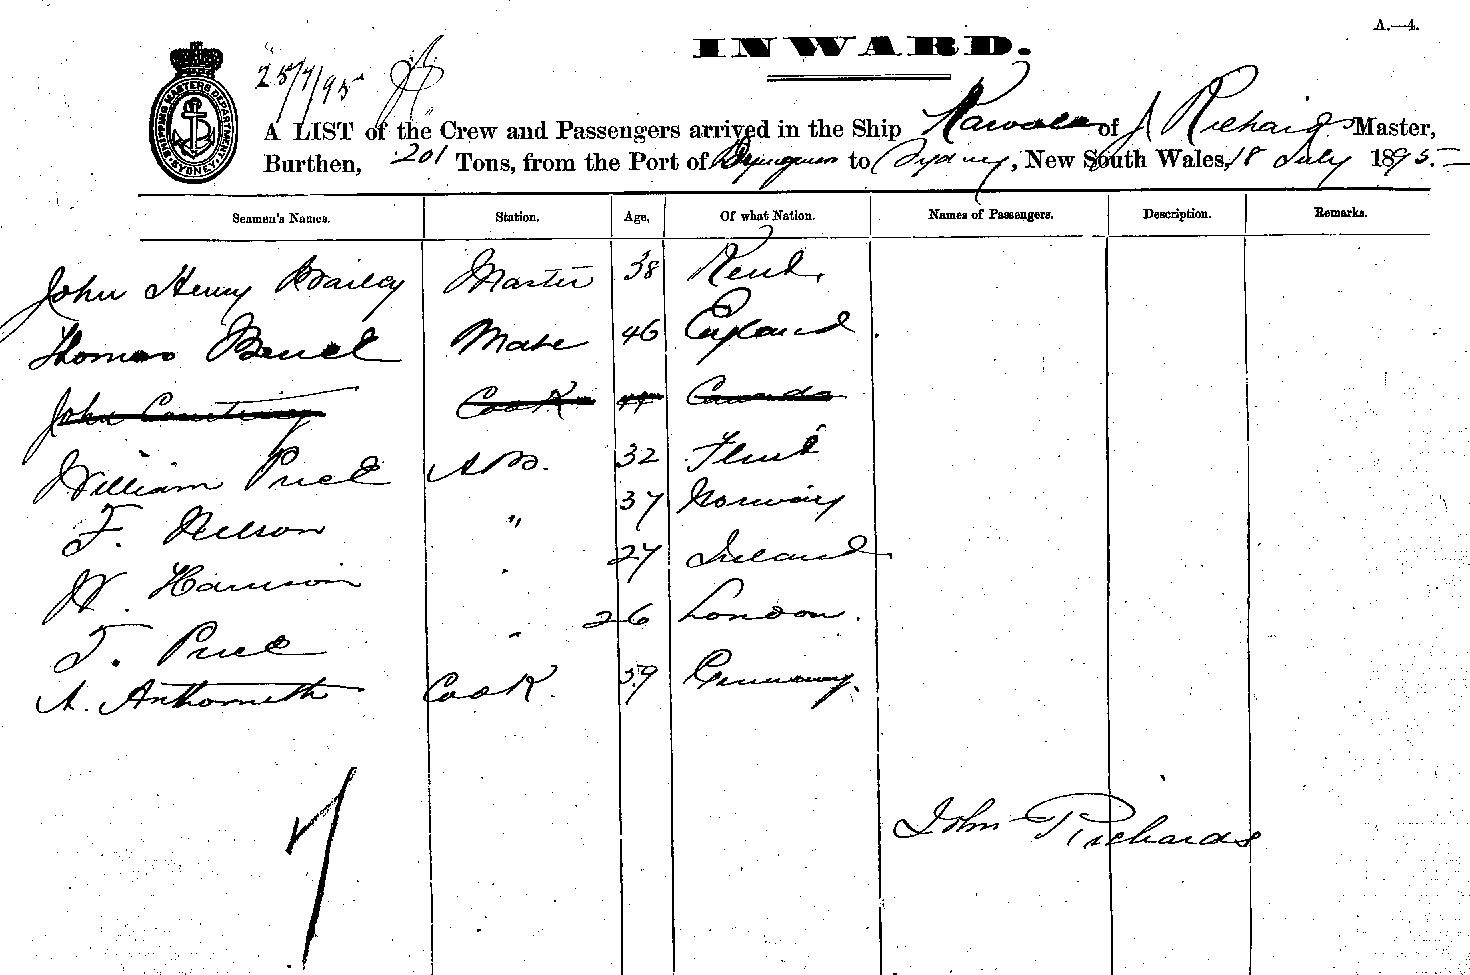 A.—4.
INWARD.
25/7/95
SHIPPING MASTERS DEPARTMENT SYDNEY
A LIST of the Crew and Passengers arrived in the Ship of J Richards Master,
Burthen, 201 Tons, from the Port of to Sydney, New South Wales, 18 July 1895.
Seamen's Names. Station. Age. Of what Nation. Names of Passengers. Description. Remarks.
John Henry Bailey Master 38 Kent.
Thomas Mate 46 England
John Cook Canada
William Price A.B. 32 Flint
F. Neilson " 37 Norway
W. Harrison " 27 Ireland
T. Price " 26 London.
A. Cook. 59 Germany.
7
John Richards